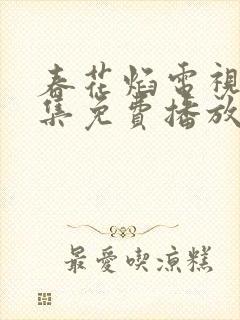 春花焰電視
集免費播放
最愛喫涼糕